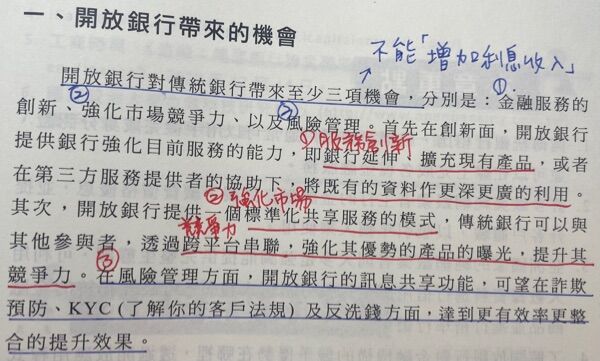 一、開放銀行帶來的機會
不能「增加利息收入」
開放銀行對傳統銀行帶來至少三項機會，分別是：金融服務的
①
創新、強化市場競爭力、以及風險管理。首先在創新面，開放銀行
②
③
①服務創新
提供銀行強化目前服務的能力，即銀行延伸、擴充現有產品，或者
在第三方服務提供者的協助下，將既有的資料作更深更廣的利用。
②強化市場
其次，開放銀行提供一個標準化共享服務的模式，傳統銀行可以與
競爭力
其他參與者，透過跨平台串聯，強化其優勢的產品的曝光，提升其
③
競爭力。在風險管理方面，開放銀行的訊息共享功能，可望在詐欺
預防、KYC (了解你的客戶法規) 及反洗錢方面，達到更有效率更整
合的提升效果。